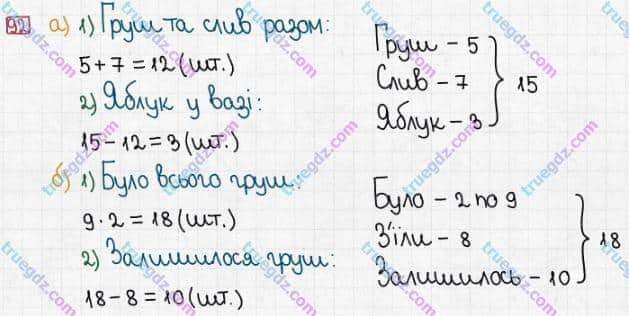 92 а) 1) Груш та слив разом:
5 + 7 = 12 (шт.)
2) Яблук у вазі:
15 - 12 = 3 (шт.)
Груш - 5
Слив - 7
Яблук - 3
15
б) 1) Було всього груш:
9 · 2 = 18 (шт.)
2) Залишилося груш:
18 - 8 = 10 (шт.)
Було - 2 по 9
З'їли - 8
Залишилось - 10
18
truegdz.com